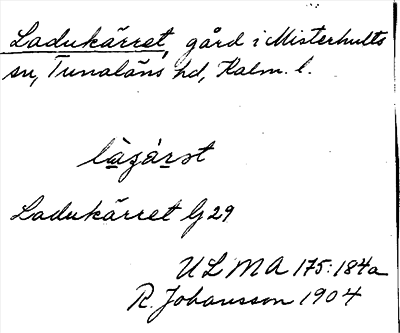 Ladukärret, gård i Misterhults
sn, Tunaläns hd, Kalm. l.
Ladukärret G 29
ULMA 175:184a
R. Johansson 1904